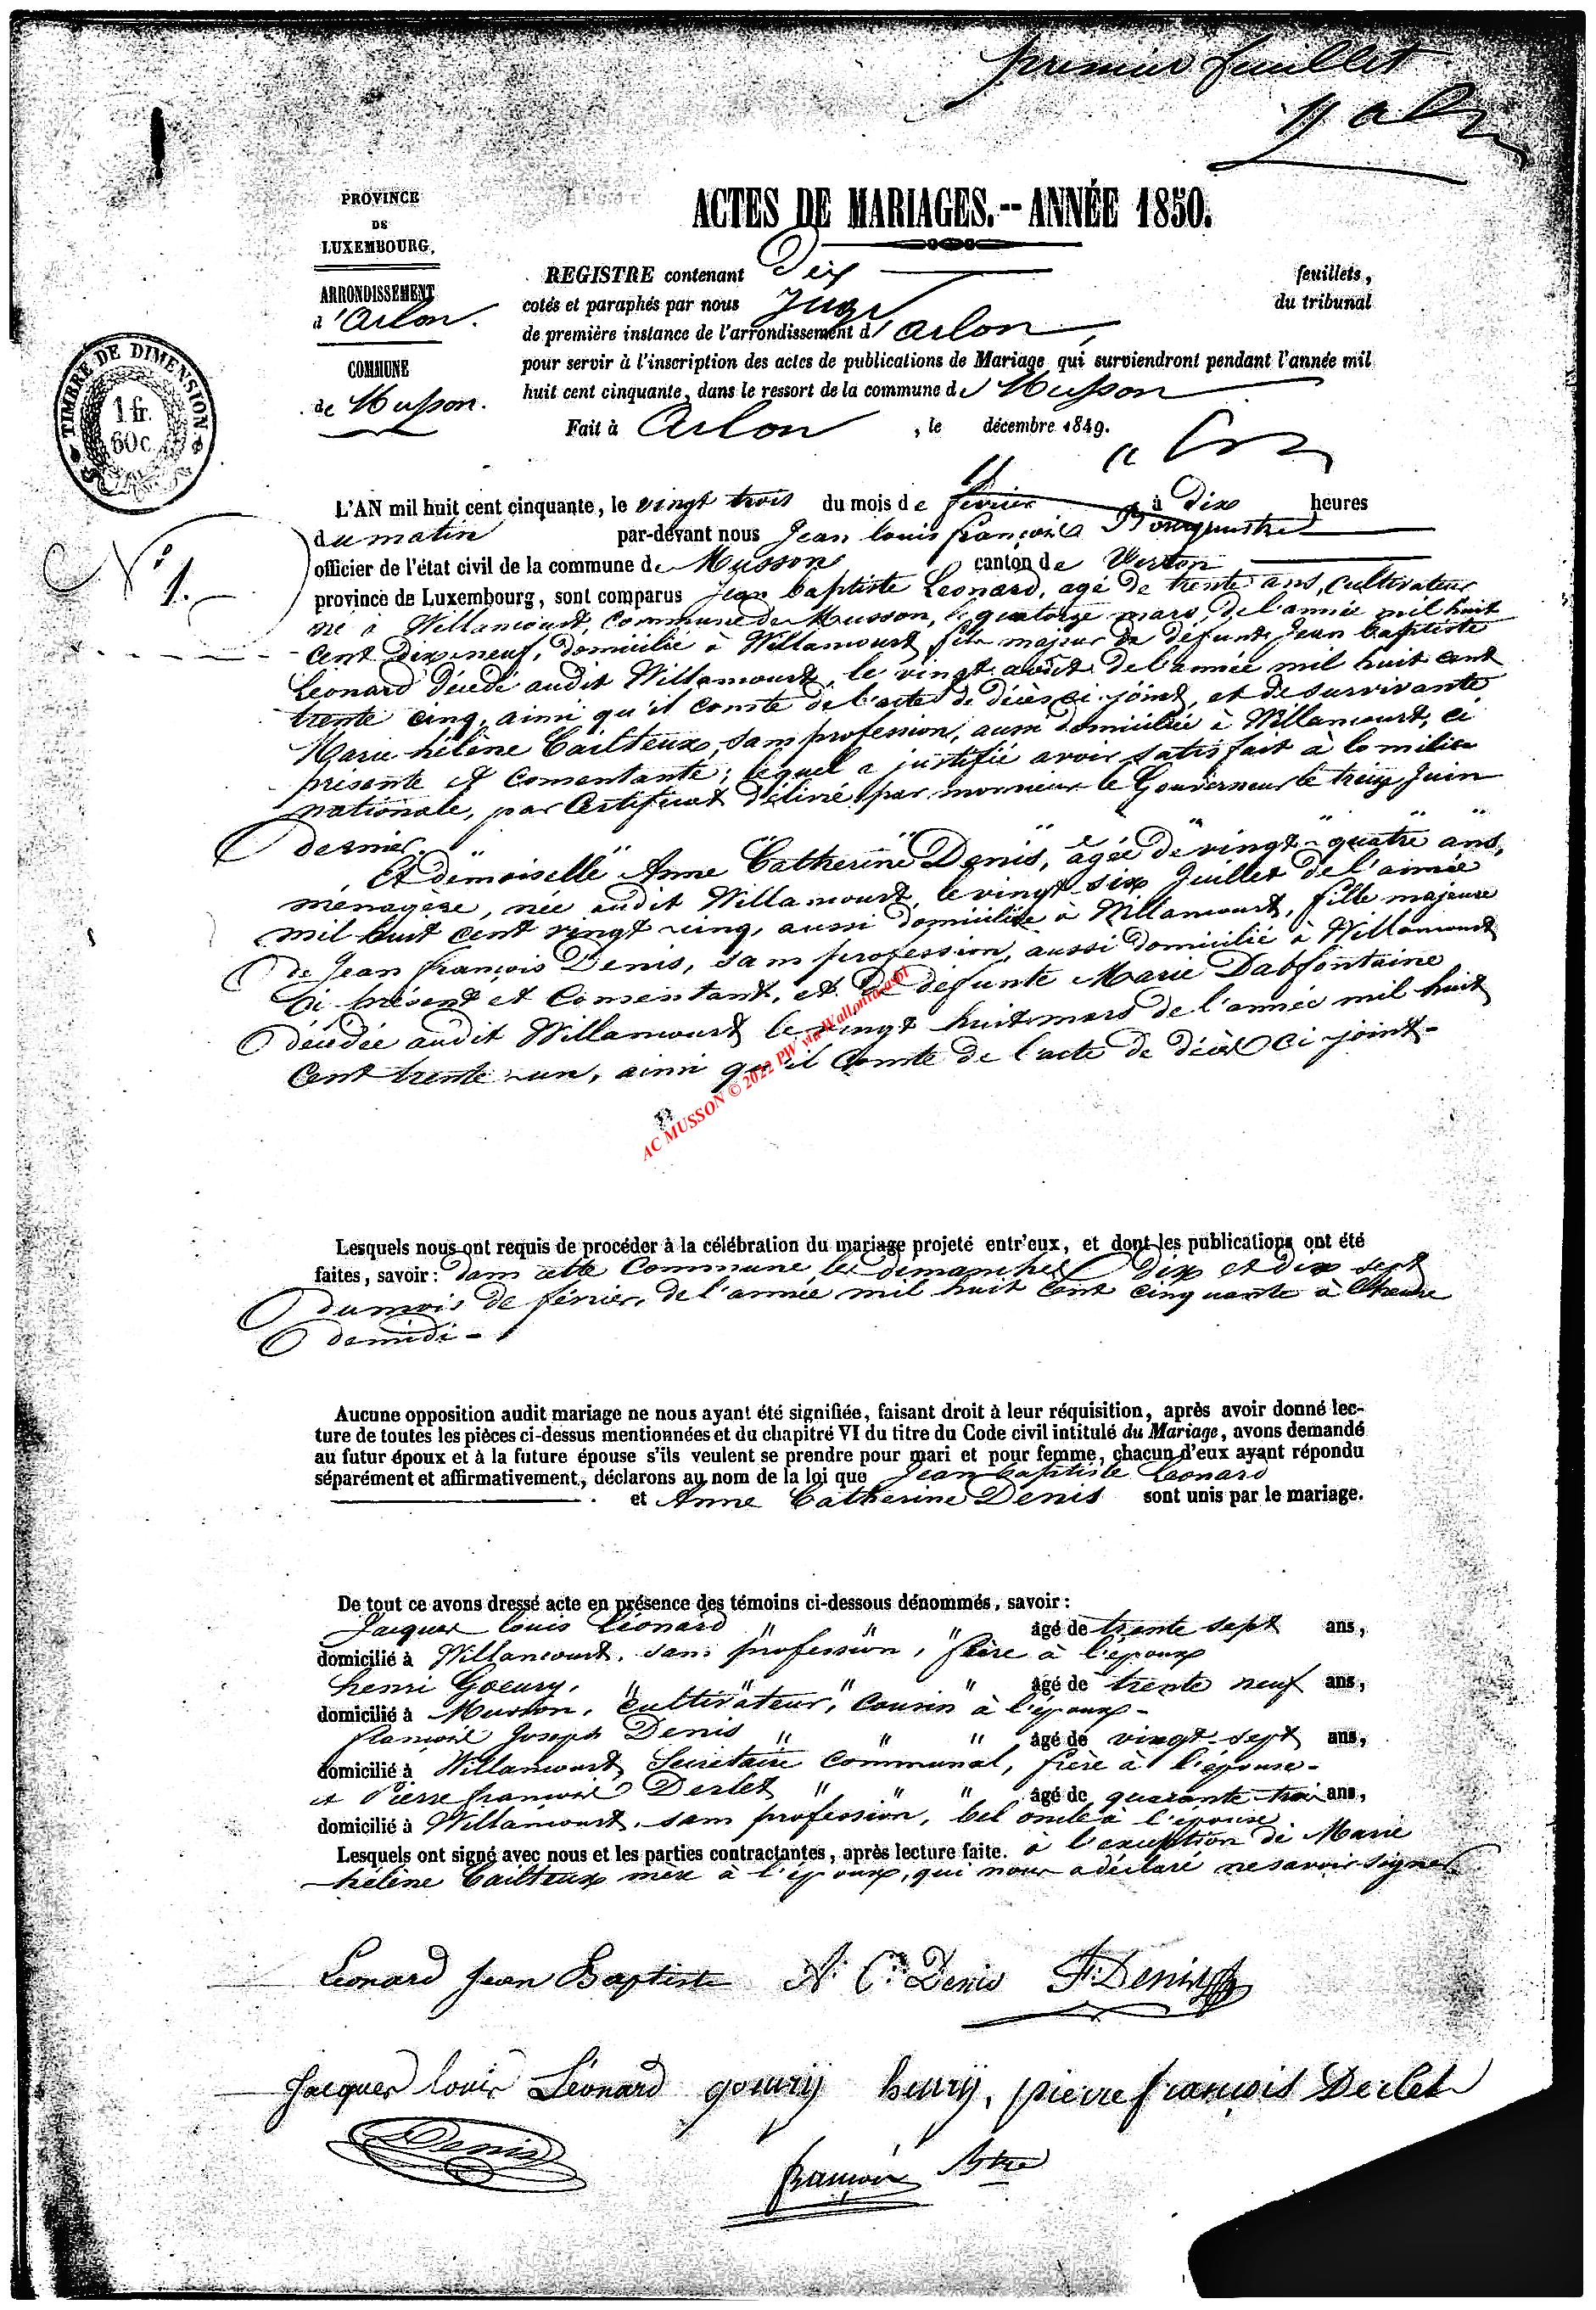 premier feuillet
PROVINCE
DE
LUXEMBOURG.
ARRONDISSEMENT
d'Arlon.
COMMUNE
de Musson.
TIMBRE DE DIMENSION
1 fr.
60 c.
ACTES DE MARIAGES.-- ANNÉE 1850.
REGISTRE contenant Dix feuillets,
cotés et paraphés par nous Juge du tribunal
de première instance de l'arrondissement d'arlon,
pour servir à l'inscription des actes de publications de Mariage qui surviendront pendant l'année mil
huit cent cinquante, dans le ressort de la commune de Musson
Fait à Arlon , le décembre 1849.
N° 1.
L'AN mil huit cent cinquante, le vingt trois du mois de février à dix heures
du matin par-devant nous Jean louis françois Bourgmestre
officier de l'état civil de la commune de Musson canton de Virton
province de Luxembourg, sont comparus Jean baptiste Leonard, agé de trente ans, cultivateur
né à Willancourt, commune de Musson, le quatorze mars de l'année mil huit
cent dix neuf, domicilié à Willancourt fils majeur de défunt Jean baptiste
Leonard décédé audit Willancourt, le vingt août de l'année mil huit cent
trente cinq, ainsi qu'il conste de l'acte de décès ci-joint, et de survivante
Marie hélène Cailteux, sans profession, aussi domiciliée à Willancourt, ci
présente et consentante; lequel a justifié avoir satisfait à la milice
nationale, par certificat délivré par monsieur le Gouverneur le treize Juin
dernier.
Et demoiselle Anne Catherine Denis, âgée de vingt-quatre ans,
ménagère, née audit Willancourt, le vingt-six Juillet de l'année
mil huit cent vingt cinq, aussi domiciliée à Willancourt, fille majeure
de Jean françois Denis, sans profession, aussi domicilié à Willancourt
ci présent et consentant, et de défunte Marie Dabfontaine
décédée audit Willancourt le vingt huit mars de l'année mil huit
cent trente-un, ainsi qu'il conste de l'acte de décès ci-joint-
AC MUSSON © 2022 PW via Wallonia asbl
Lesquels nous ont requis de procéder à la célébration du mariage projeté entr'eux, et dont les publications ont été
faites, savoir: dans cette commune les dimanches dix et dix sept
du mois de février, de l'année mil huit cent cinquante à l'heure
de midi -
Aucune opposition audit mariage ne nous ayant été signifiée, faisant droit à leur réquisition, après avoir donné lec-
ture de toutes les pièces ci-dessus mentionnées et du chapitre VI du titre du Code civil intitulé du Mariage, avons demandé
au futur époux et à la future épouse s'ils veulent se prendre pour mari et pour femme, chacun d'eux ayant répondu
séparément et affirmativement, déclarons au nom de la loi que Jean baptiste Leonard
et Anne Catherine Denis sont unis par le mariage.
De tout ce avons dressé acte en présence des témoins ci-dessous dénommés, savoir:
Jacques louis Léonard " " " âgé de trente sept ans,
domicilié à Willancourt, sans profession, frère à l'époux
henri Goeury, " " " âgé de trente neuf ans,
domicilié à Musson, cultivateur, cousin à l'époux-
françois Joseph Denis " " " âgé de vingt-sept ans,
domicilié à Willancourt, Secrétaire communal, frère à l'épouse-
et Pierre françois Derlet " " " âgé de quarante-trois ans,
domicilié à Willancourt, sans profession, bel oncle à l'épouse
Lesquels ont signé avec nous et les parties contractantes, après lecture faite. à l'exception de Marie
hélène Cailteux mère à l'époux, qui nous a déclaré ne savoir signer
Leonard Jean Baptiste A. C. Denis F. Denis
Jacques louis Léonard goeury henry, pierre françois Derlet
Denis
françois Btre